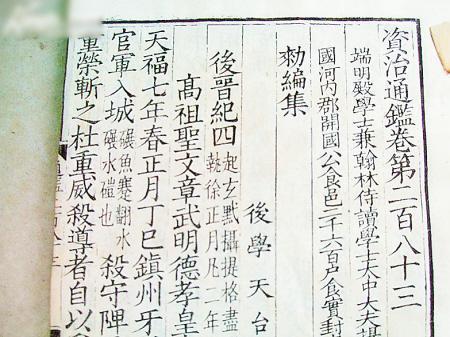 資治通鑑卷第二百八十三
端明殿學士兼翰林侍讀學士太中大夫提
國河内郡開國公食邑二千六百戶食實封
勑編集
後學天台
後晉紀四 起玄黓攝提格盡
執徐正月凡二年
高祖聖文章武明德孝皇
天福七年春正月丁巳鎮州牙
官軍入城 碾魚蹇翻水
碾水磑也 殺守陴
重榮斬之杜重威殺導者自以